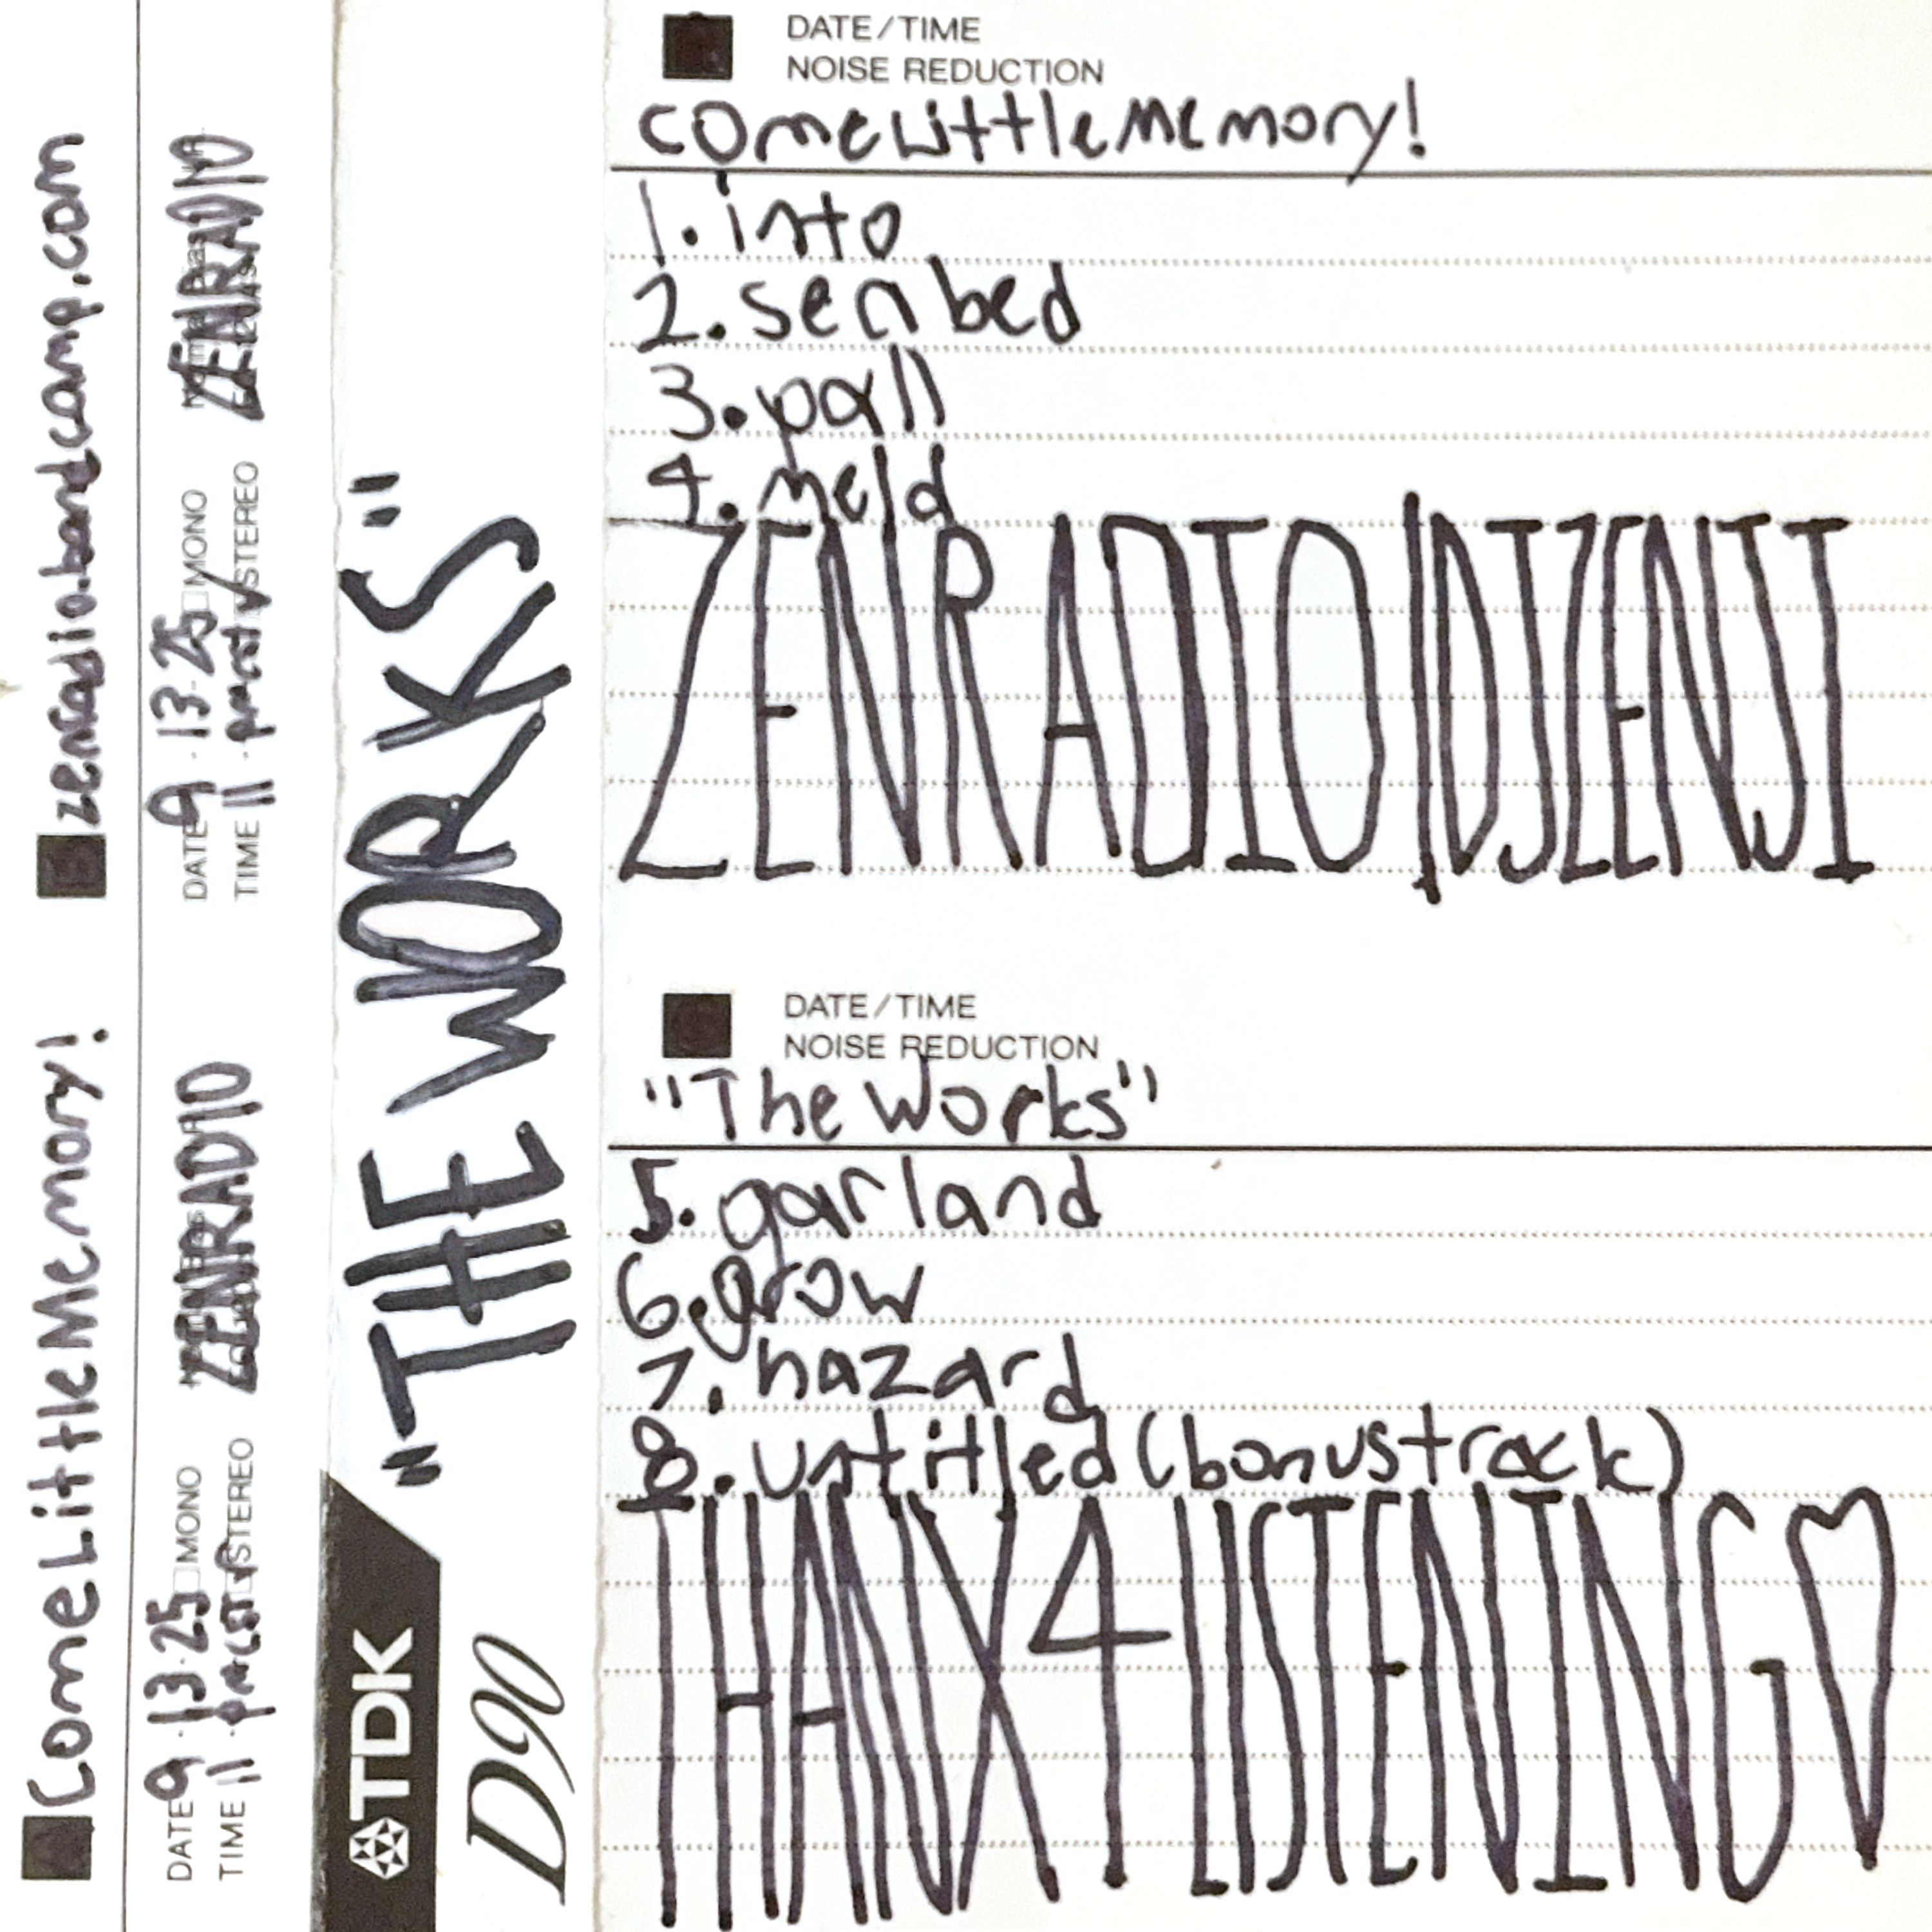 zenradio.bandcamp.com
DATE 9.13.25 □MONO
TIME 11 STEREO
ZENRADIO
ComeLittleMemory!
DATE 9.13.25 □MONO
TIME 11 STEREO
ZENRADIO
"THE WORKS"
TDK
D90
DATE/TIME
NOISE REDUCTION
comeLittleMemory!
1. into
2. seabed
3. pall
4. meld
ZENRADIO|DJZENJI
DATE/TIME
NOISE REDUCTION
"The Works"
5. garland
6. grow
7. hazard
8. untitled (bonus track)
THANX 4 LISTENING♡